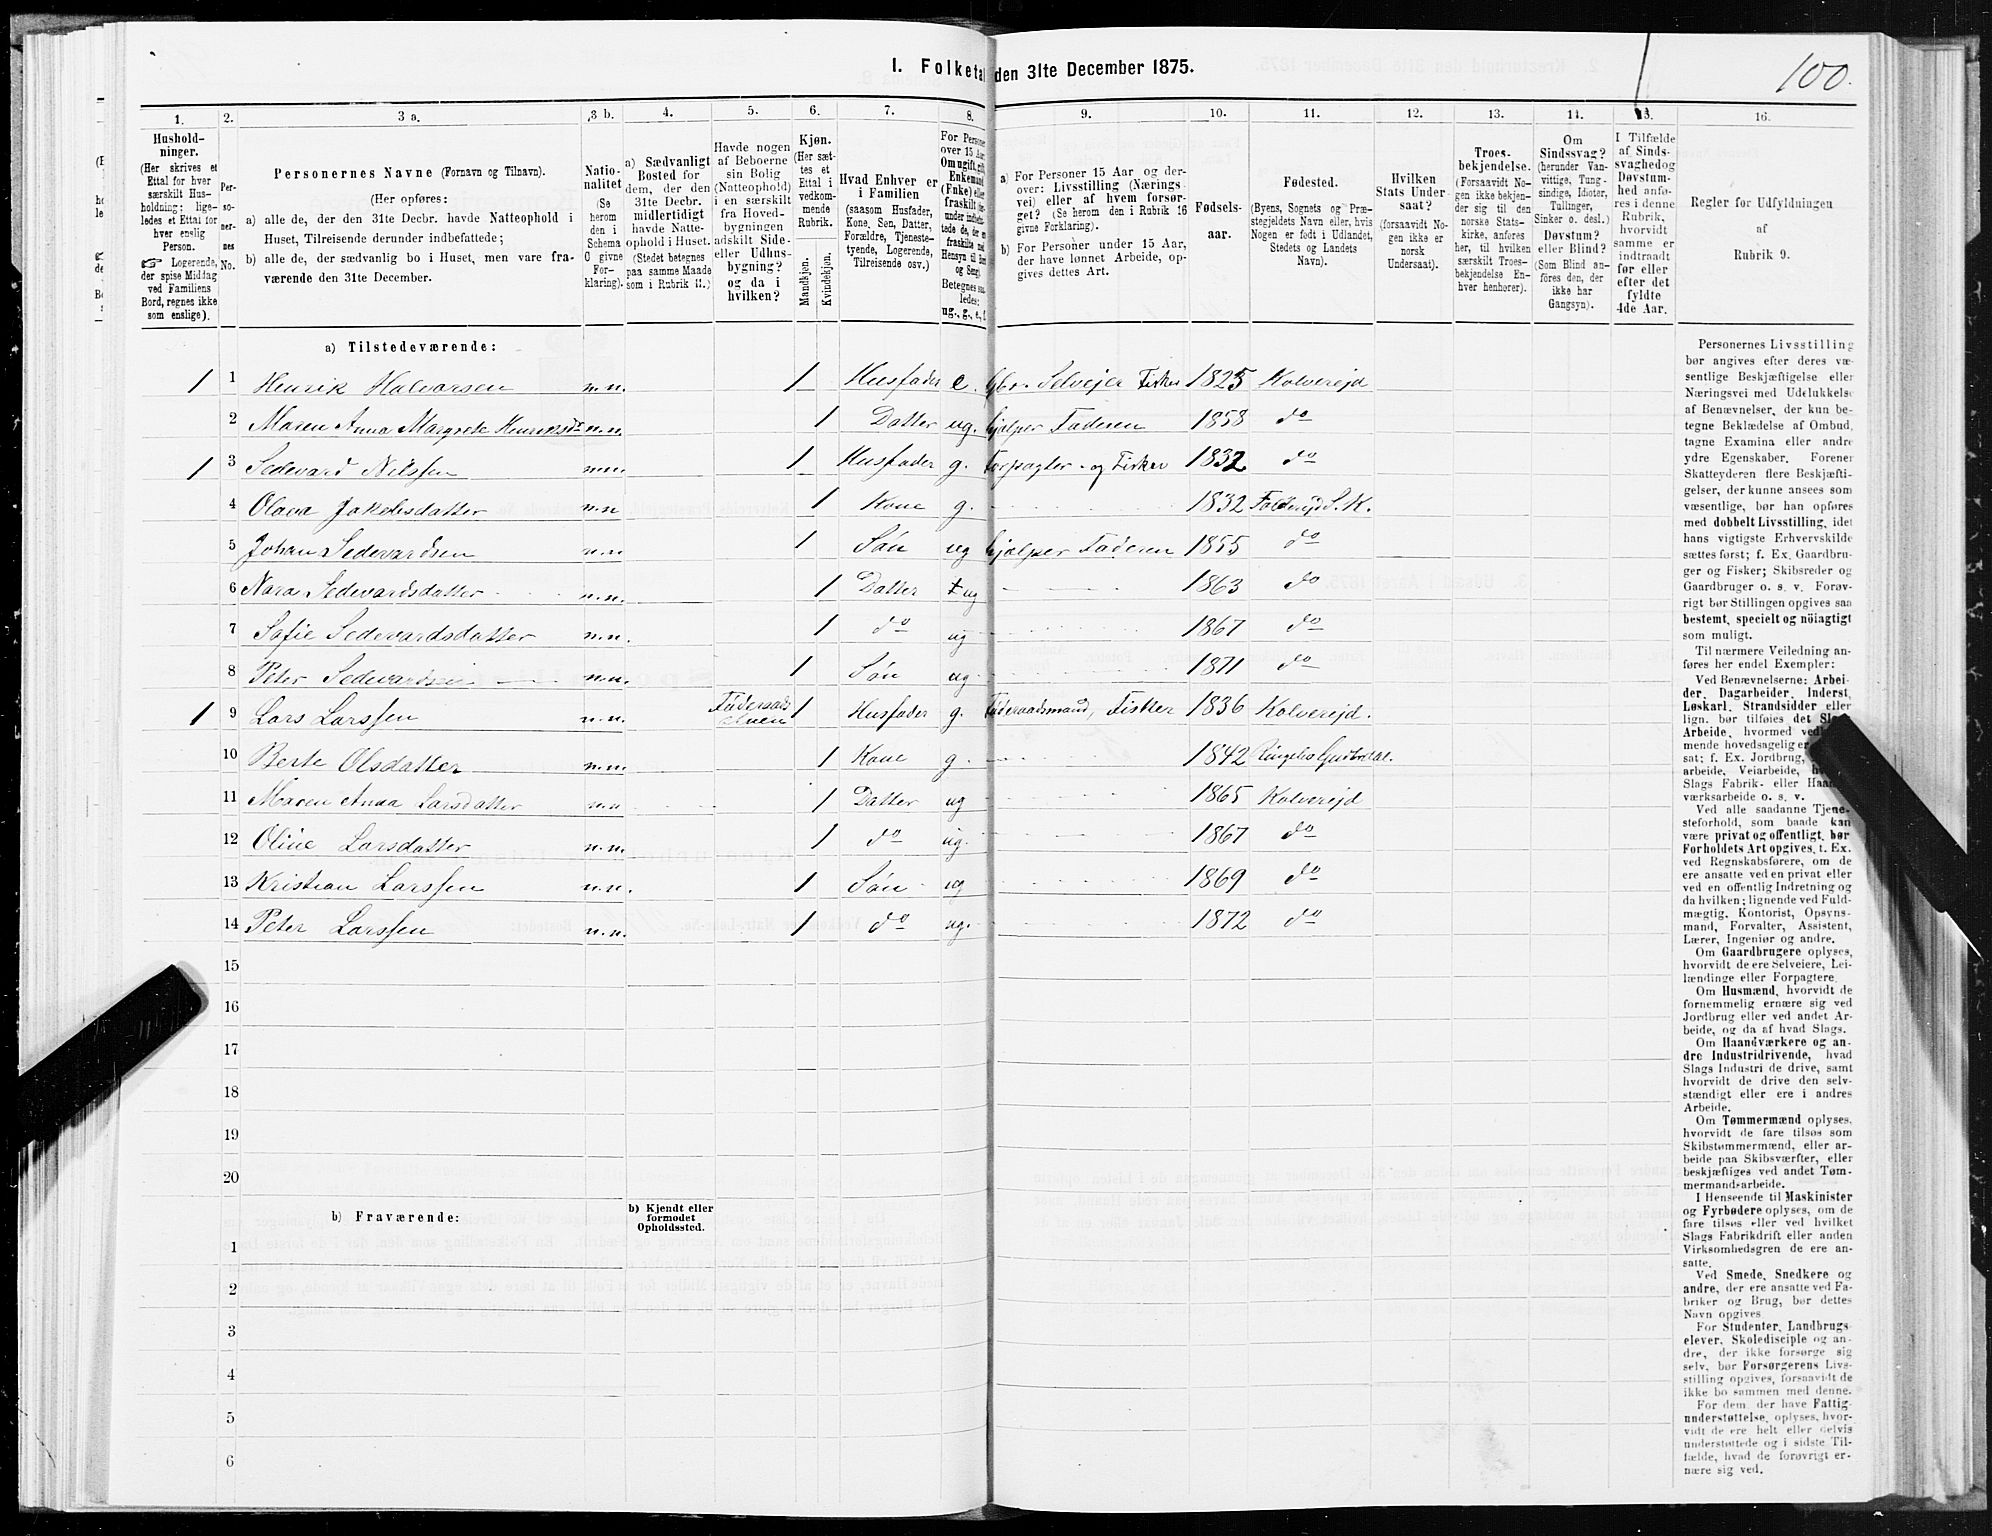 I. Folketal den 31te December 1875.
100.
1. 2. 3 a. 3 b. 4. 5. 6. 7. 8. 9. 10. 11. 12. 13. 14. 15. 16.
Hushold-
ninger.
(Her skrives et
Ettal for hver
særskilt Hus-
holdning; lige-
ledes et Ettal for
hver enslig
Person.
☞ Logerende,
der spise Middag
ved Familiens
Bord, regnes ikke
som enslige).
Per-
so-
ner-
nes
No.
Personernes Navne (Fornavn og Tilnavn).
(Her opføres:
a) alle de, der den 31te Decbr. havde Natteophold i
Huset, Tilreisende derunder indbefattede;
b) alle de, der sædvanlig bo i Huset, men vare fra-
værende den 31te December.
Natio-
nalitet
(Se
herom
den i
Schema
O givne
For-
klaring).
a) Sædvanligt
Bosted for
dem, der den
31te Decbr.
midlertidigt
havde Natte-
ophold i Huset.
(Stedet betegnes
paa samme Maade
som i Rubrik 11.)
Havde nogen
af Beboerne
sin Bolig
(Natteophold)
i en særskilt
fra Hoved-
bygningen
adskilt Side-
eller Udhus-
bygning?
og da i
hvilken?
Kjøn.
(Her sæt-
tes et
Ettal i
vedkom-
mende
Rubrik.
Mandkjøn.
Kvindekjøn.
Hvad Enhver er
i Familien
(saasom Husfader,
Kone, Søn, Datter,
Forældre, Tjeneste-
tyende, Logerende,
Tilreisende osv.)
For Personer
over 15 Aar:
Om ugift, gift,
Enkemand
(Enke) eller
fraskilt
Betegnes saa-
ledes:
ug., g., e., f.
a) For Personer 15 Aar og der-
over: Livsstilling (Nærings-
vei) eller af hvem forsør-
get? (Se herom den i Rubrik 16
givne Forklaring).
b) For Personer under 15 Aar,
der have lønnet Arbeide, op-
gives dettes Art.
Fødsels-
aar.
Fødested.
(Byens, Sognets og Præ-
stegjeldets Navn eller, hvis
Nogen er født i Udlandet,
Stedets og Landets
Navn).
Hvilken
Stats Under-
saat?
(forsaavidt No-
gen ikke er
norsk
Undersaat).
Troes-
bekjendelse.
(Forsaavidt No-
gen ikke bekjen-
der sig til den
norske Stats-
kirke, anføres
her, til hvilken
særskilt Troes-
bekjendelse En-
hver henhører).
Om
Sindssvag?
(herunder Van-
vittige, Tung-
sindige, Idioter,
Tullinger,
Sinker o. desl.)
Døvstum?
eller Blind?
(Som Blind an-
føres den, der
ikke har
Gangsyn).
I Tilfælde
af Sinds-
svaghed og
Døvstum-
hed anfø-
res i denne
Rubrik,
hvorvidt
samme er
indtraadt
før eller
efter det
fyldte
4de Aar.
Regler for Udfyldningen
af
Rubrik 9.
a) Tilstedeværende:
1 1 Henrik Halvorsen n.n. 1 Husfader e. Gbr. Selvejer Fisker 1825 Kolvereid
2 Maren Anna Margrete Henriksdr n.n. 1 Datter ug. hjælper Faderen 1858 do
1 3 Sedevard Nilssen n.n. 1 Husfader g. Forpagter og Fisker 1832 do
4 Olava Jakobsdatter n.n 1 Kone g. 1832 S.K.
5 Johan Sedevardsen n.n 1 Søn ug hjælper Faderen 1855 do
6 Nara Sedevardsdatter n.n. 1 Datter ug 1863 do
7 Sofie Sedevardsdatter n.n. 1 do ug 1867 do
8 Peter Sedevardsen n.n. 1 Søn ug. 1871 do
1 9 Lars Larssen n.n. 1 Husfader g. Føderaadsmand, Fisker 1836 Kolvereid.
10 Berte Olsdatter n.n. 1 Kone g. 1842 Ringebo Gudbrdal.
11 Maren Anna Larsdatter n.n 1 Datter ug 1865 Kolvereid
12 Oline Larsdatter n.n. 1 do ug. 1867 do
13 Kristian Larssen n.n. 1 Søn ug 1869 do
14 Peter Larssen n.n. 1 do ug. 1872 do
15
16
17
18
19
20
b) Fraværende:
b) Kjendt eller
formodet
Opholdssted.
1
2
3
4
5
6
Personernes Livsstilling
bør angives efter deres væ-
sentlige Beskjæftigelse eller
Næringsvei med Udelukkelse
af Benævnelser, der kun be-
tegne Beklædelse af Ombud,
tagne Examina eller andre
ydre Egenskaber. Forener
Skatteyderen flere Beskjæfti-
gelser, der kunne ansees som
væsentlige, bør han opføres
med dobbelt Livsstilling, idet
hans vigtigste Erhvervskilde
sættes først; f. Ex. Gaardbru-
ger og Fisker; Skibsreder og
Gaardbruger o. s. v. Forøv-
rigt bør Stillingen opgives saa
bestemt, specielt og nöiagtigt
som muligt.
Til nærmere Veiledning an-
føres her endel Exempler:
Ved Benævnelserne: Arbei-
der, Dagarbeider, Inderst,
Løskarl, Strandsidder eller
lign. bør tilføies det Slags
Arbeide, hvormed
mende hovedsagelig er
sat; f. Ex. Jordbrug,
arbeide, Veiarbeide,
Slags Fabrik- eller
værksarbeide o. s. v.
Ved alle saadanne Tjene-
steforhold, som baade kan
være privat og offentligt, bør
Forholdets Art opgives, t. Ex.
ved Regnskabsførere, om de
ere ansatte ved en privat eller
ved en offentlig Indretning og
da hvilken; lignende ved Fuld-
mægtig, Kontorist, Opsyns-
mand, Forvalter, Assistent,
Lærer, Ingeniør og andre.
Om Gaardbrugere oplyses,
hvorvidt de ere Selveiere, Lei-
lændinge eller Forpagtere.
Om Husmænd, hvorvidt de
fornemmelig ernære sig ved
Jordbrug eller ved andet Ar-
beide, og da af hvad Slags.
Om Haandværkere og an-
dre Industridrivende, hvad
Slags Industri de drive, samt
hvorvidt de drive den selv-
stændigt eller ere i andres
Arbeide.
Om Tømmermænd oplyses,
hvorvidt de fare tilsøs som
Skibstømmermænd, eller ar-
beide paa Skibsværfter, eller
beskjæftiges ved andet Tøm-
mermandsarbeide.
I Henseende til Maskinister
og Fyrbødere oplyses, om de
fare tilsøs eller ved hvilket
Slags Fabrikdrift eller anden
Virksomhedsgren de ere an-
satte.
Ved Smede, Snedkere og
andre, der ere ansatte ved Fa-
briker og Brug, bør dettes
Navn opgives
For Studenter, Landbrugs-
elever, Skoledisciple og an-
dre, der ikke forsørge sig
selv, bør Forsørgerens Livs-
stilling opgives, forsaavidt de
ikke bo sammen med denne.
For dem, der have Fattig-
understøttelse, oplyses, hvor-
vidt de ere helt eller delvis
understøttede og i sidste Til-
fælde, hvad de forøvrigt er-
nære sig ved.